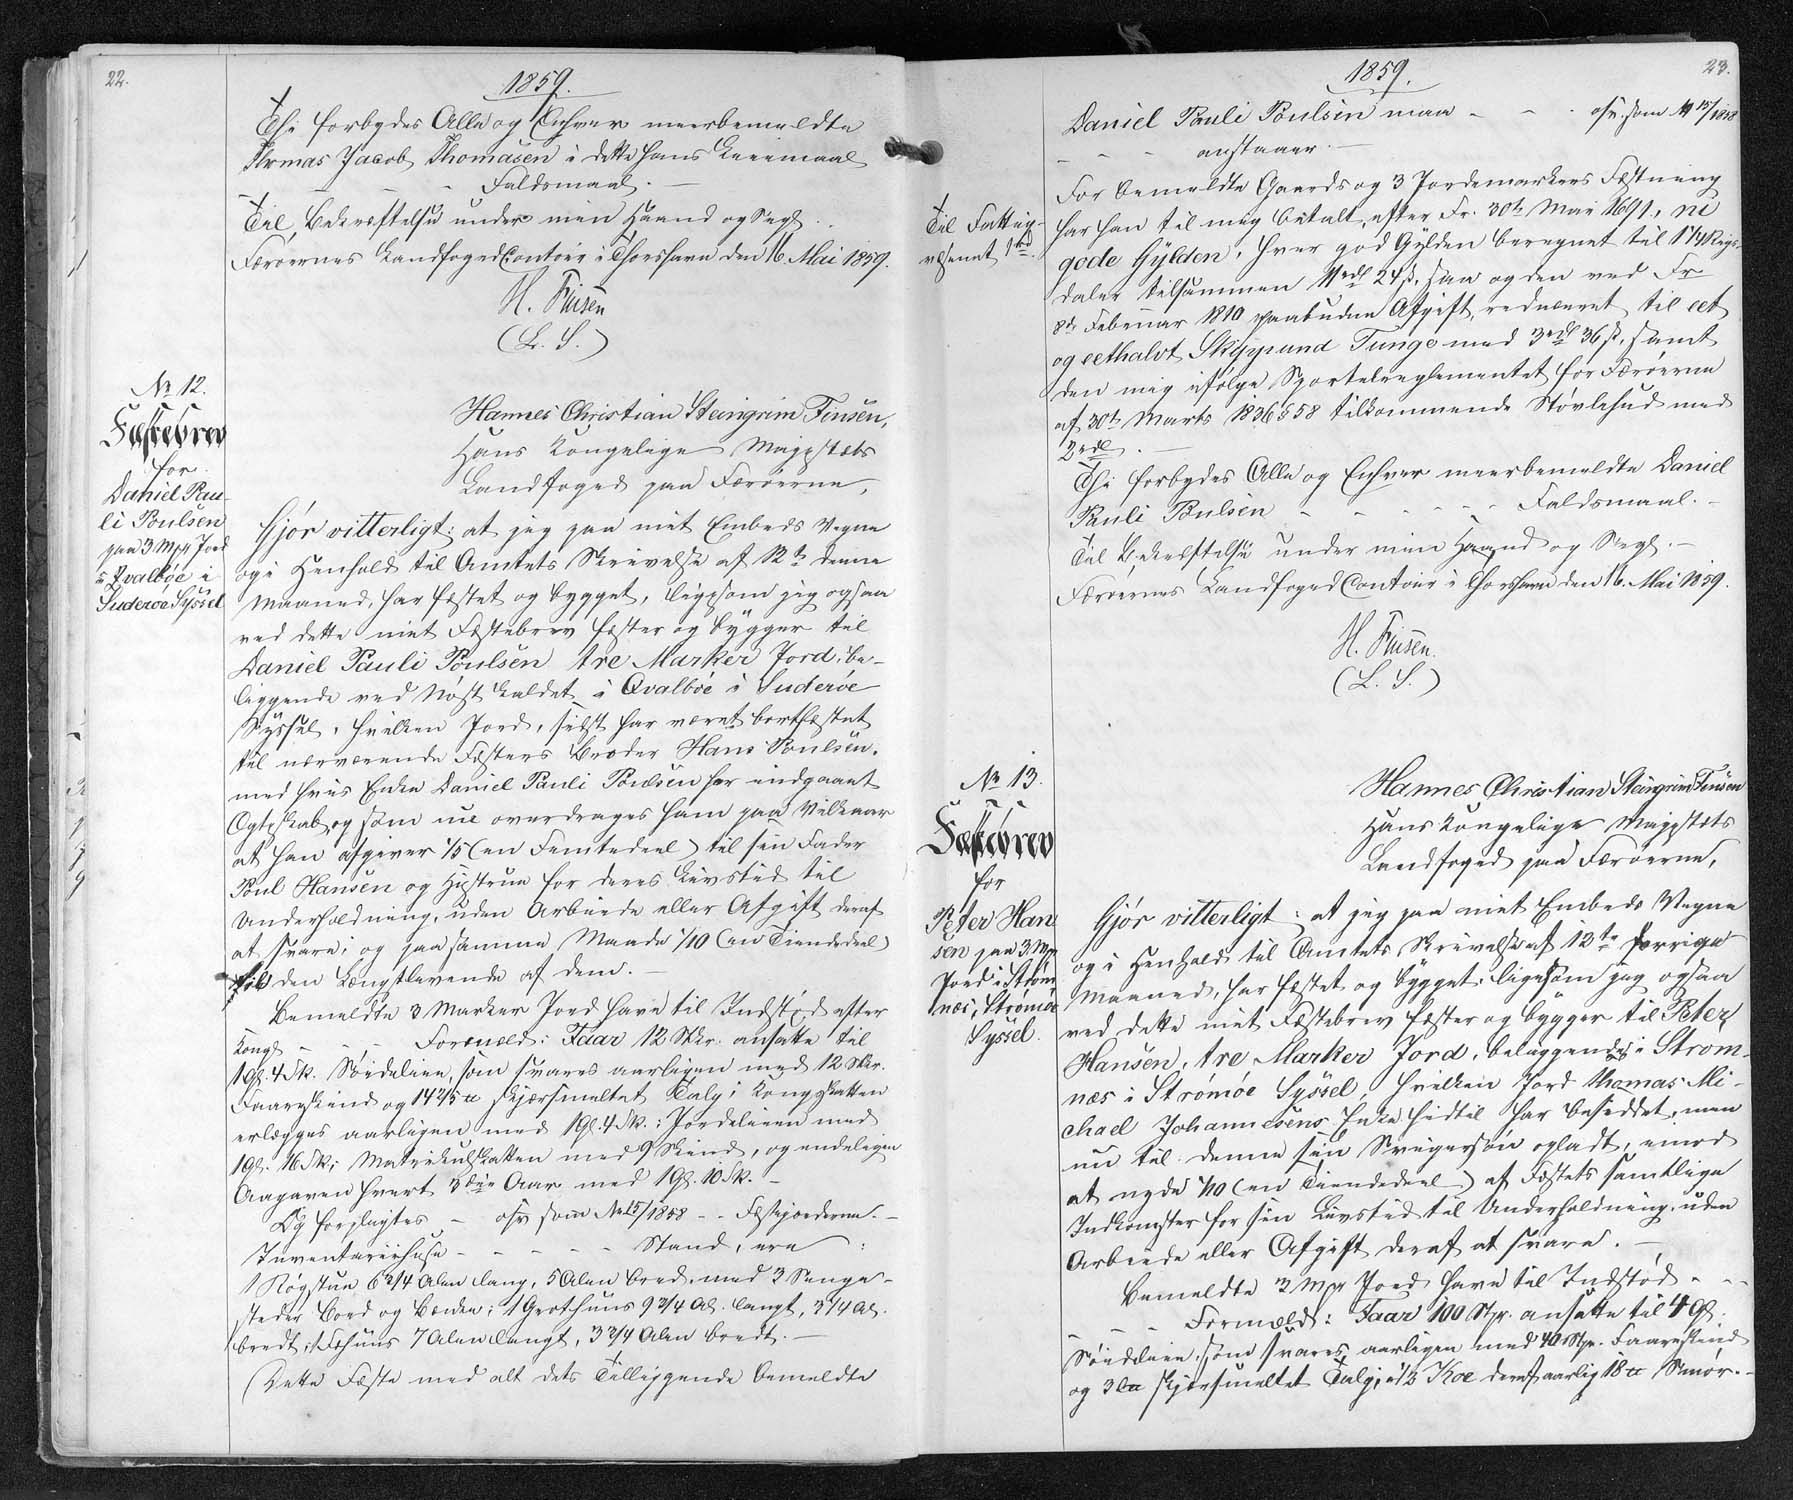 22.
1859.
Thi forbydes Alle og Enhver meerbemeldte
Thomas Jacob Thomasen i dette hans Leiemaal
- - - Faldsmaal. -
Til Bekræftelse under min Haand og Segl.
Færøernes Landfoged Contoir i Thorshavn den 16 Mai 1859.
H. Finsen
(L. S.)
No 12.
Fæstebrev
for
Daniel Pau-
li Poulsen
paa 3 Mrk Jord
i Qvalbøe i
Suderøe Syssel
Hannes Christian Steingrim Finsen,
Hans Kongelige Majestæts
Landfoged paa Færøerne,
Gjør vitterligt: at jeg paa mit Embeds Vegne
og i Henhold til Amtets Skrivelse af 12te denne
Maaned, har fæstet og bygget, ligesom jeg ogsaa
ved dette mit Fæstebrev fæster og bygger til
Daniel Pauli Poulsen tre Marker Jord, be-
liggende ved Nøst kaldet i Qvalbøe i Suderøe
Syssel, hvilken Jord, sidst har været bortfæstet
til nærværende Fæsters Broder Hans Poulsen,
med hvis Enke Daniel Pauli Poulsen har indgaaet
Ægteskab, og som nu overdrages ham paa Vilkaar
at han afgiver 1/5 (en Femtedeel) til sin Fader
Poul Hansen og Hustrue for deres Livstid til
Underholdning, uden Arbeide eller Afgift deraf
at svare; og paa samme Maade 1/10 (en Tiendedeel)
til den Længstlevende af dem. -
Bemeldte 3 Marker Jord have til Indstød efter
Kongl - - - Formeld: Faar 12 Stkr. ansatte til
1 Gl. 4 Sk. Søidelien, som svares aarligen med 12 Stkr.
Faareskind og 14 2/5 ℔ skjærsmeltet Talg; Kongsskatten
erlægges aarligen med 1 Gl. 4 Sk.; Jordeleien med
1 Gl. 16 Sk; Matrikulskatten med 9 Skind, og endeligen
Aagaven hvert 3die Aar med 1 Gl. 10 Sk. -
Og forpligtes - osv som No 15/1858 - - Fæstejorderne. -
Inventariihuse - - - - - Stand, ere:
1 Røgstue 6 3/4 Alen lang, 5 Alen bred, med 3 Senge-
steder Bord og Bænke; 1 Grothuus 9 3/4 Al. langt, 3 1/4 Al.
bredt; 1 Fæhuus 7 Alen langt, 3 3/4 Alen bredt. -
Dette Fæste med alt dets Tilliggende bemeldte
23.
1859.
Daniel Pauli Poulsen maa - - osv. som No 15/1858
- - - anstaaer. -
Til Fattig-
væsenet 1 rd.
For bemeldte Gaards og 3 Jordemarkers Fæstning
har han til mig betalt, efter Fr. 30te Mai 1691, ni
gode Gylden, hver god Gylden beregnet til 1 1/4 Rigs-
daler tilsammen 11 rdl 24 ß, saa og den ved Fr
8de Februar 1810 paabudne Afgift, reduceret til eet
og eethalvt Skippund Tunge med 3 rdl 36 ß, samt
den mig ifølge Sportelreglementet for Færøerne
af 30te Marts 1836 § 58 tilkommende Støvlehud med
2 rdl. -
Thi forbydes Alle og Enhver meerbemeldte Daniel
Pauli Poulsen - - - - - - Faldsmaal. -
Til Bekræftelse under min Haand og Segl. -
Færøernes Landfoged Contoir i Thorshavn den 16. Mai 1859.
H. Finsen.
(L. S.)
No 13.
Fæstebrev
for
Peter Han
sen paa 3 Mrk
Jord i Strøm
næs, Strømøe
Syssel.
Hannes Christian Steingrim Finsen
Hans Kongelige Majestæts
Landfoged paa Færøerne,
Gjør vitterligt: at jeg paa mit Embeds Vegne
og i Henhold til Amtets Skrivelse af 13te forrige
Maaned, har fæstet og bygget, ligesom jeg ogsaa
ved dette mit Fæstebrev fæster og bygger til Peter
Hansen, tre Marker Jord, beliggende i Strøm-
næs i Strømøe Syssel, hvilken Jord Thomas Mi-
chael Johannesens Enke hidtil har besiddet, men
nu til denne sin Svigersøn opladt, imod
at nyde 1/10 (en Tiendedeel) af Fæstets samtlige
Indkomster for sin Livstid til Underholdning, uden
Arbeide eller Afgift deraf at svare. -
Bemeldte 3 Mrk Jord have til Indstød - - -
- - - Formeld: Faar 100 Stkr. ansatte til 4 Gl.
Søidelien, som svares aarligen med 40 Stkr. Faareskind
og 3 ℔ skjærsmeltet Talg; 1/2 Koe deraf aarlig 18 ℔ Smør. -